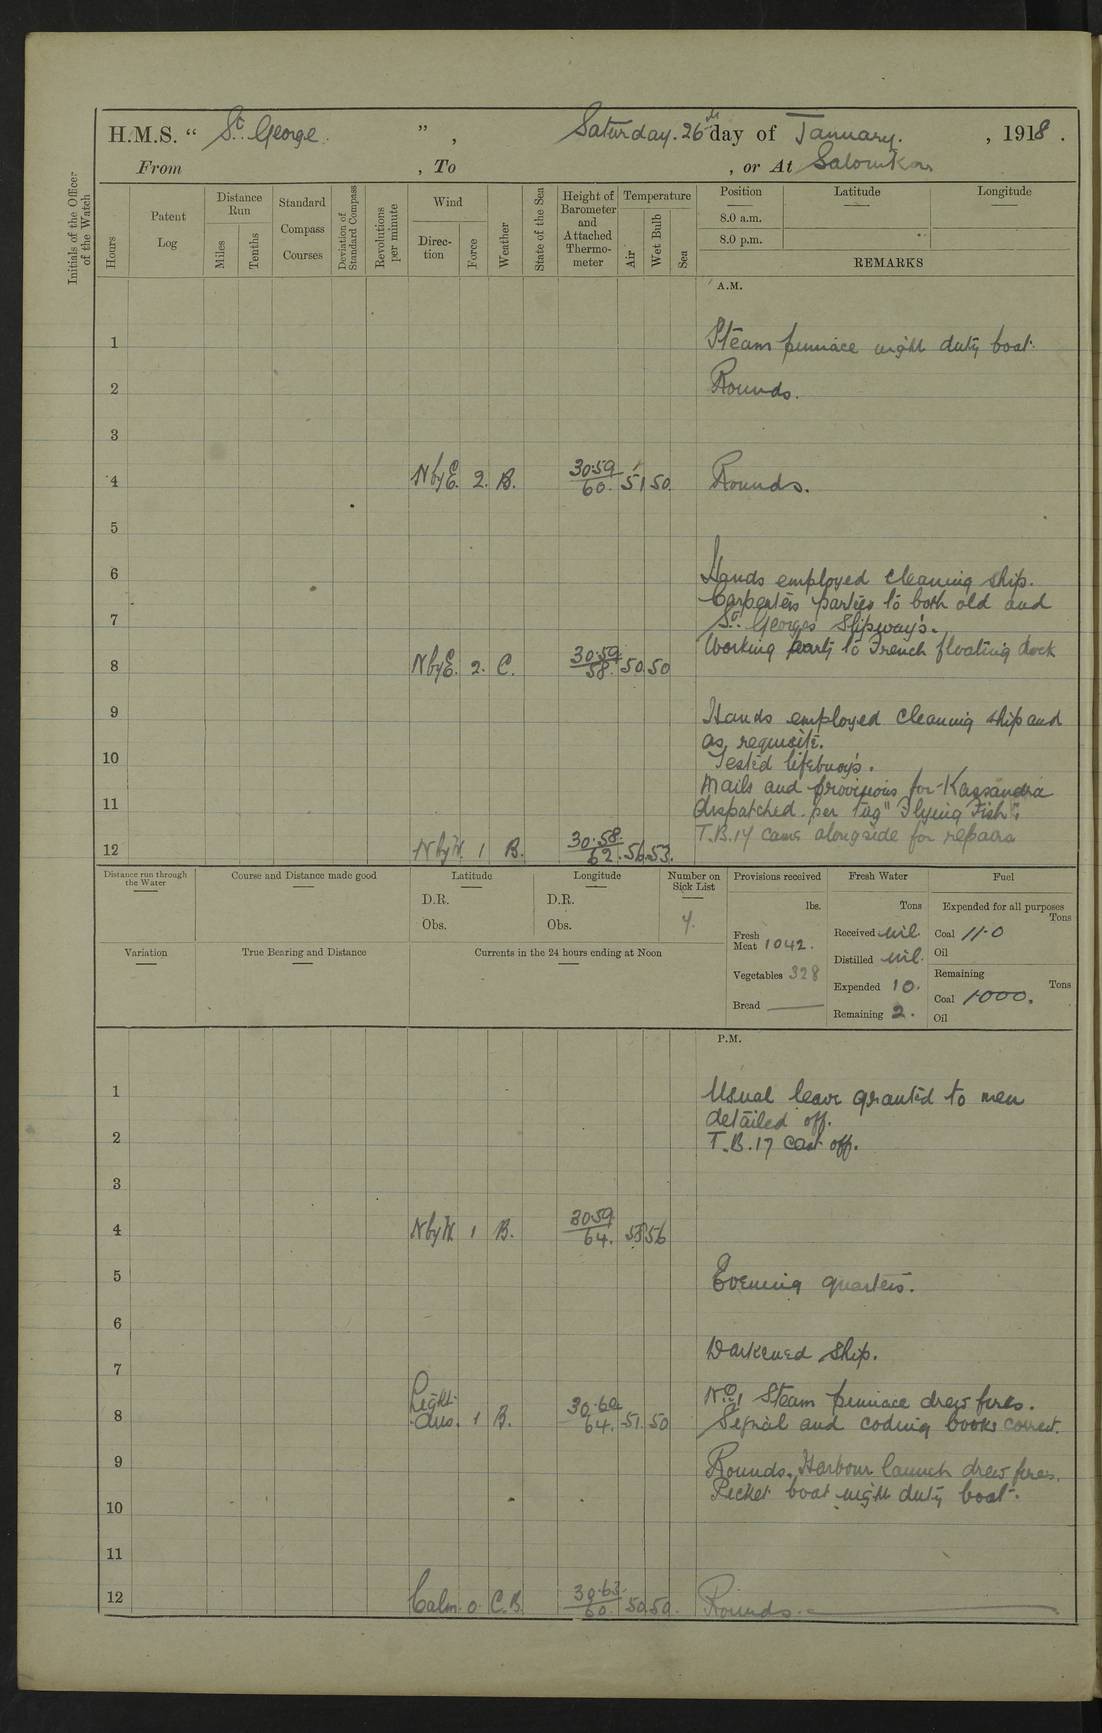 H.M.S. " St. George " , Saturday. 26th day of January. , 1918 .
From , To , or At Salonika
Initials of the Officer of the Watch
Hours
Patent Log
Distance Run
Miles
Tenths
Standard Compass Courses
Deviation of Standard Compass
Revolutions per minute
Wind
Direction
Force
Weather
State of the Sea
Height of Barometer and Attached Thermometer
Temperature
Air
Wet Bulb
Sea
Position Latitude Longitude
8.0 a.m.
8.0 p.m.
REMARKS
A.M.
1 Steam pinnace night duty boat.
2 Rounds.
3
4 N by E. 2. B. 30.59/60. 51 50. Rounds.
5
6 Hands employed cleaning ship.
Carpenters parties to both old and
7 St. Georges Slipway's.
Working party to French floating dock
8 N by E. 2. C. 30.59/58. 50 50
9 Hands employed cleaning ship and
as requisite.
10 Tested lifebuoy's.
Mails and provisions for Kassandra
11 dispatched per Tag "Flying Fish".
T.B.17 came alongside for repairs
12 N by W. 1 B. 30.58./62. 56. 53.
Distance run through the Water
Course and Distance made good
Latitude
D.R.
Obs.
Longitude
D.R.
Obs.
Number on Sick List
4.
Provisions received
lbs.
Fresh Meat 1042.
Vegetables 328
Bread ——
Fresh Water
Tons
Received nil.
Distilled nil.
Expended 10.
Remaining 2.
Fuel
Expended for all purposes
Tons
Coal 11.0
Oil
Remaining
Tons
Coal 1000.
Oil
Variation
True Bearing and Distance
Currents in the 24 hours ending at Noon
P.M.
1 Usual leave granted to men
detailed off.
2 T.B.17 cast off.
3
4 N by W. 1 B. 30.59/64. 58 56
5 Evening quarters.
6
Darkened ship.
7
No. 1 Steam pinnace drew fires.
8 Light airs. 1 B. 30.60/64. 51. 50 Signal and coding books correct.
9 Rounds. Harbour launch drew fires.
Picket boat night duty boat.
10
11
12 Calm. 0. C.B. 30.63./60. 50. 50. Rounds.